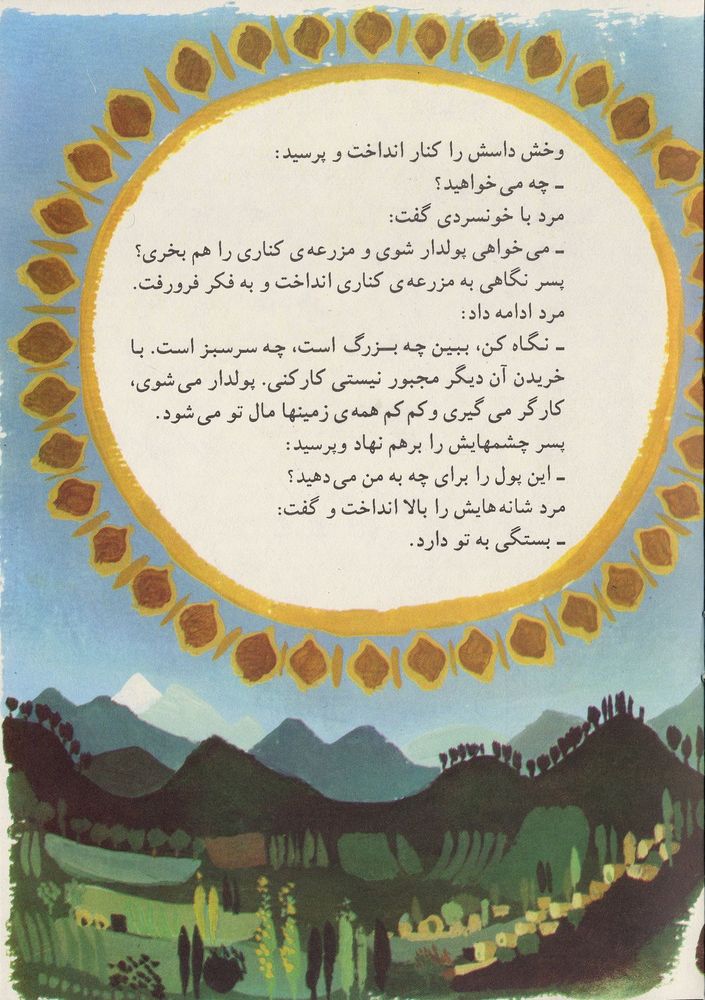 وخش داسش را کنار انداخت و پرسید:
ـ چه می‌خواهید؟
مرد با خونسردی گفت:
ـ می‌خواهی پولدار شوی و مزرعه‌ی کناری را هم بخری؟
پسر نگاهی به مزرعه‌ی کناری انداخت و به فکر فرورفت.
مرد ادامه داد:
ـ نگاه کن، ببین چه بـزرگ است، چه سرسبز است. با
خریدن آن دیگر مجبور نیستی کارکنی. پولدار می‌شوی،
کارگر می‌گیری و کم کم همه‌ی زمینها مال تو می‌شود.
پسر چشمهایش را برهم نهاد وپرسید:
ـ این پول را برای چه به من می‌دهید؟
مرد شانه‌هایش را بالا انداخت و گفت:
ـ بستگی به تو دارد.